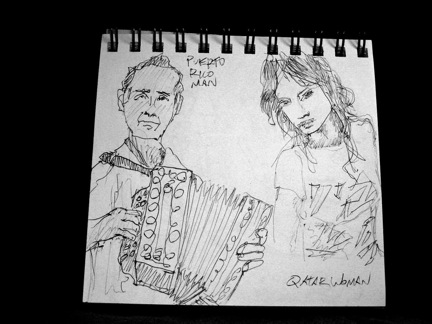 PUERTO
RICO
MAN
QATAR WOMAN